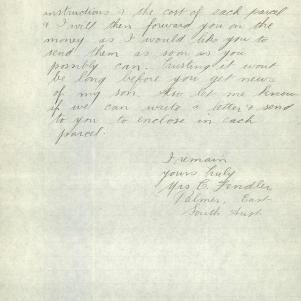 instructions & the cost of each parcel
& I will then forward you on the
money as I would like you to
send them as soon as you
possibly can. Trusting it wont
be long before you get news
of my son. Also let me know
if we can write a letter & send
to you to enclose in each
parcel.
I remain
yours truly
Mrs C. Fendler
Palmer, East
South Aust